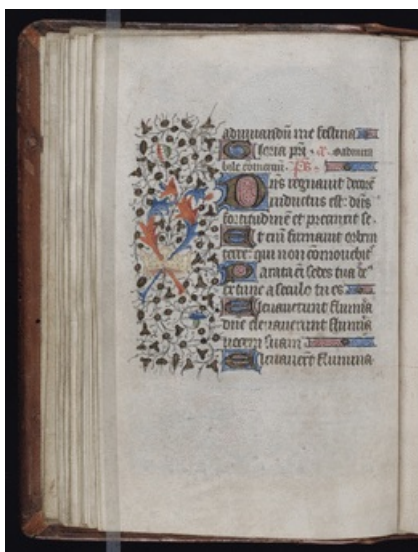 ad iuuandū me festina
Gloria pr̄i. a. Gaudent a
Dñs regnauit decorē
indutus est: dñs
fortitudinē et precinxit se
Et eni firmauit orbem
terre: qui non cōmouebit̄
Parata ē sedes tua de
ex tunc a seculo tu es
Eleuauerunt flumina
dñe eleuauerunt flumina
uocem suam
Eleuauerūt flumina